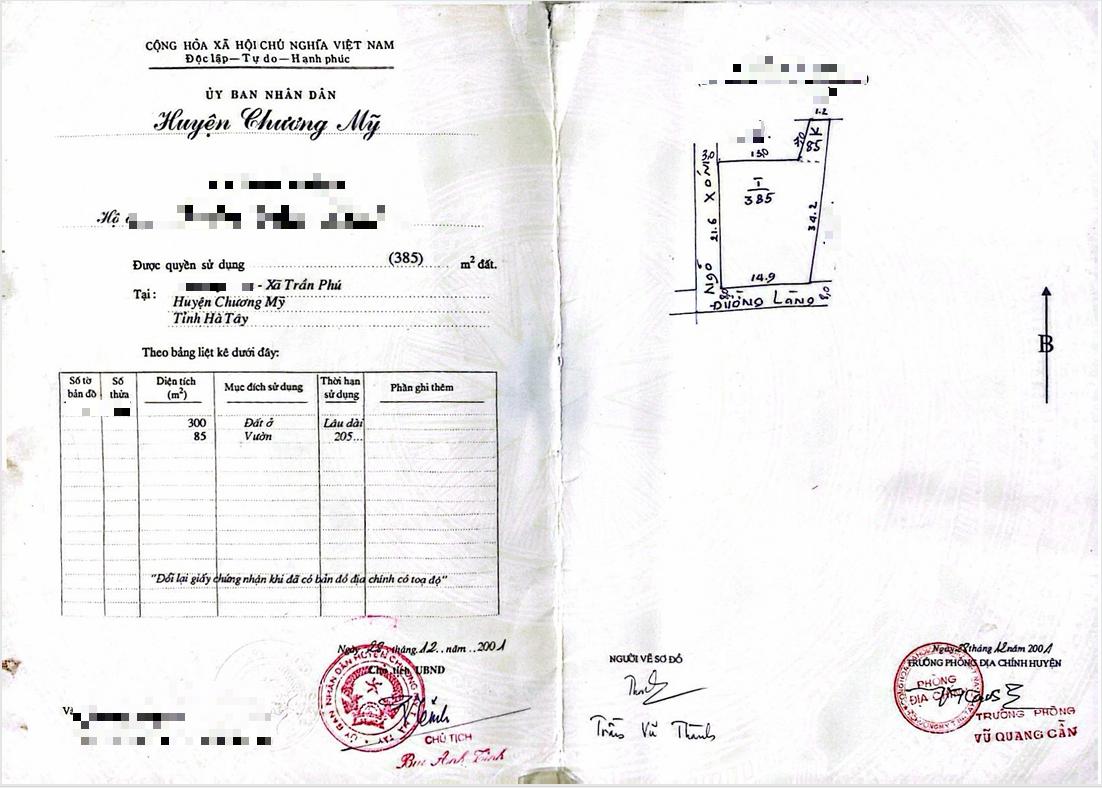 CỘNG HÒA XÃ HỘI CHỦ NGHĨA VIỆT NAM
Độc lập—Tự do—Hạnh phúc
ỦY BAN NHÂN DÂN
Huyện Chương Mỹ
Hộ
Được quyền sử dụng (385) m² đất.
Tại: - Xã Trần Phú
Huyện Chương Mỹ
Tỉnh Hà Tây
Theo bảng liệt kê dưới đây:
Số tờ bản đồ Số thửa Diện tích (m²) Mục đích sử dụng Thời hạn sử dụng Phần ghi thêm
300 Đất ở Lâu dài
85 Vườn 205...
"Đổi lại giấy chứng nhận khi đã có bản đồ địa chính có toạ độ"
Ngày 28 tháng 12 năm 2001
Chủ tịch UBND
CHỦ TỊCH
1.2
K
85
3,0
13,0
T
385
NGÕ XÓM
21.6
34.2
14.9
8,0
8,0
ĐƯỜNG LÀNG
B
NGƯỜI VẼ SƠ ĐỒ
Trần Vũ Thành
Ngày 28 tháng 12 năm 2001
TRƯỞNG PHÒNG ĐỊA CHÍNH HUYỆN
PHÒNG
ĐỊA CHÍNH
TRƯỞNG PHÒNG
VŨ QUANG CẦN